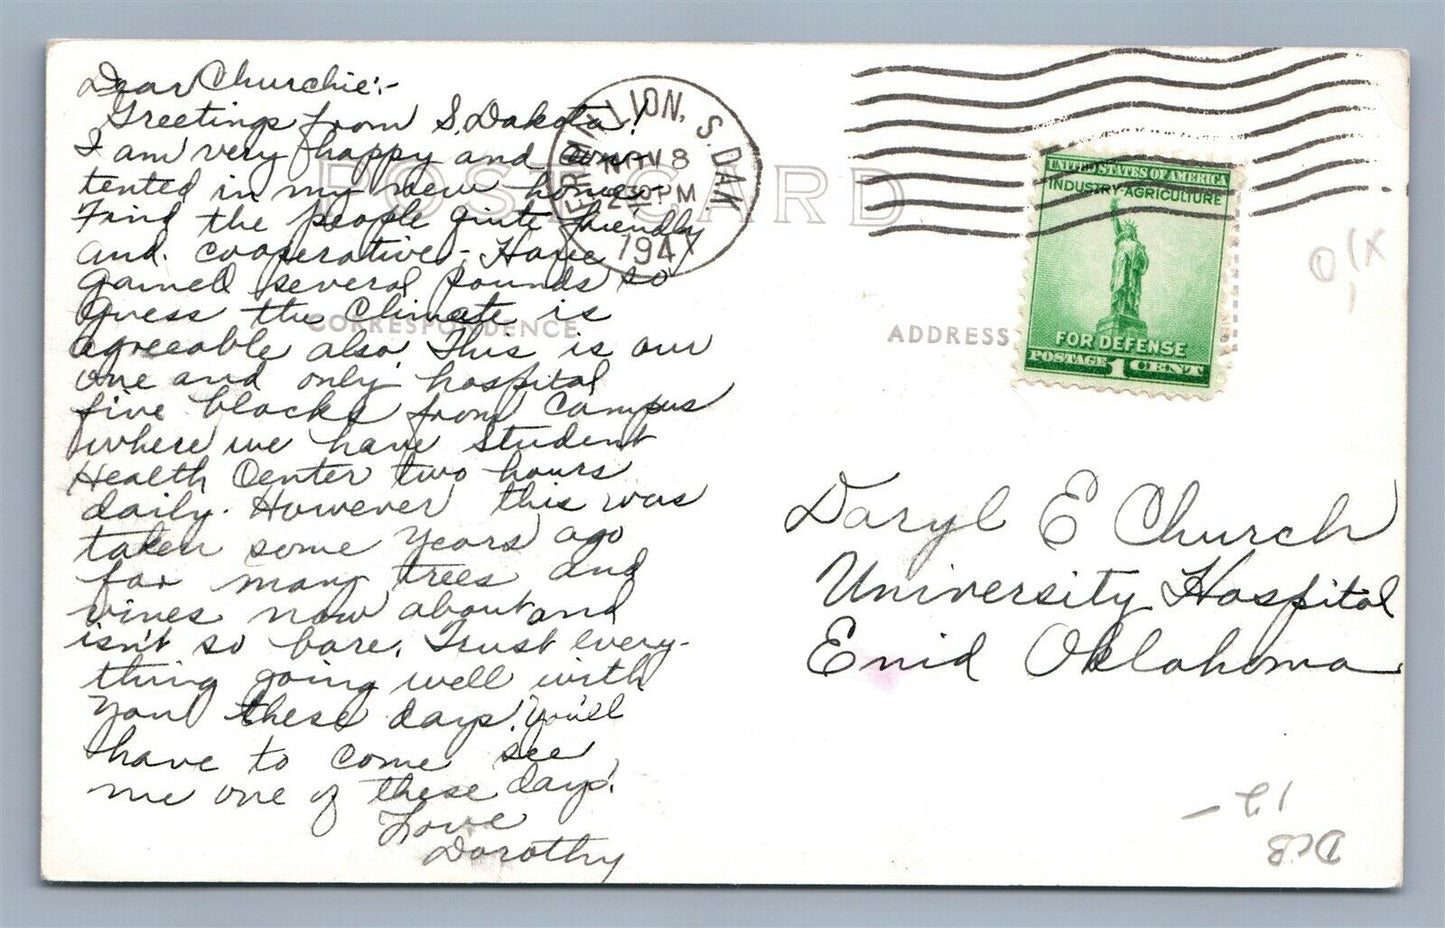 Dear Churchie:-
Greetings from S. Dakota!
I am very happy and con-
tented in my new home-
Find the people quite friendly
and cooperative - Have
gained several pounds so
Guess the Climate is
agreeable also. This is our
one and only hospital
five blocks from Campus
where we have Student
Health Center two hours
daily. However this was
taken some years ago
for many trees and
vines now about and
isn't so bare. Trust every-
thing going well with
you these days! You'll
have to come see
me one of these days!
Love
Dorothy
POST CARD
CORRESPONDENCE
ADDRESS
VERMILLION, S. DAK
NOV 8
230 PM
1941
UNITED STATES OF AMERICA
INDUSTRY AGRICULTURE
FOR DEFENSE
POSTAGE 1 CENT
Daryl E Church
University Hospital
Enid Oklahoma
12-
DCB